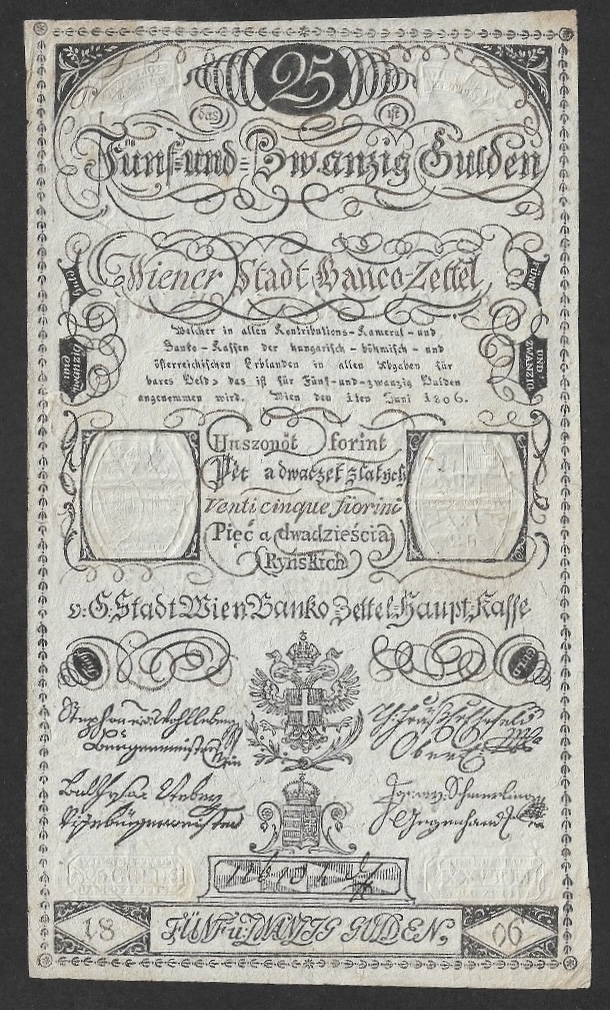 25
das ist
Fünf-und-Zwanzig Gulden
Wiener Stadt-Banco-Zettel
FÜNF
UND
ZWANZIG
Welcher in allen Kontributions-Kameral-und
Banko-Kassen der hungarisch-böhmisch-und
österreichischen Erblanden in allen Abgaben für
bares Geld, das ist für Fünf-und-zwanzig Gulden
angenommen wird. Wien den 1ten Juni 1806.
Huszonöt forint
Pět a dwaczet zlatych
Venti cinque fiorini
Pięć a dwadzieścia
Ryńskich
v: G: Stadt Wien Banko Zettel-Haupt-Kasse
Stephan v: Wohlleben
Burgermeister
Oberst
Vizebürgermeister
18 FÜNF u: ZWANZIG GULDEN, 06